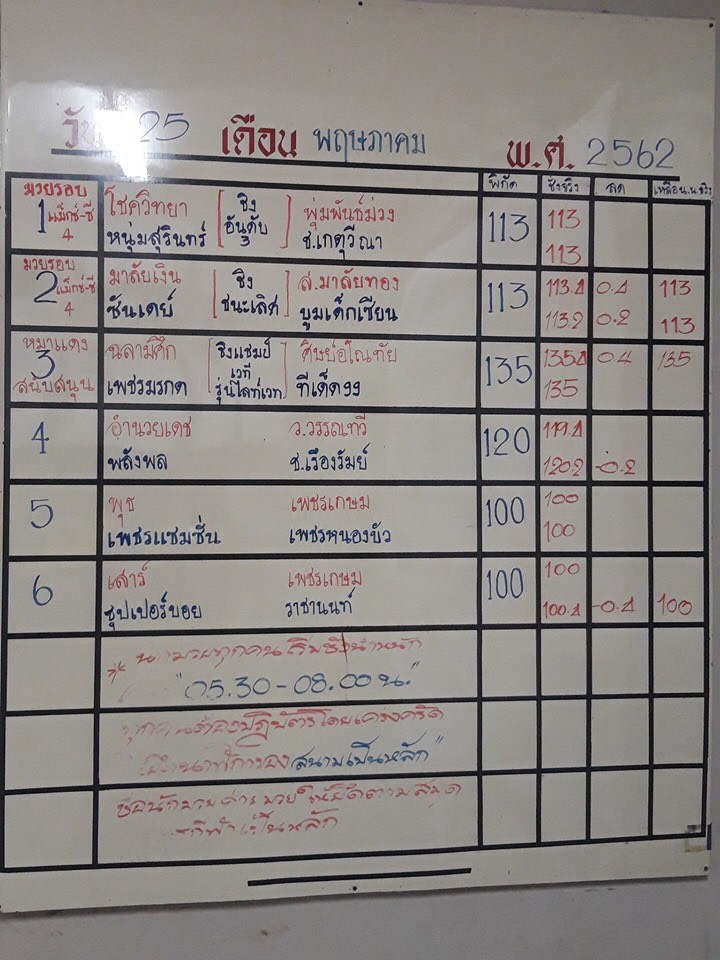 วัน 25 เดือน พฤษภาคม พ.ศ. 2562
พิกัด ชั่งจริง ลด เหลือ น.น.จริง
มวยรอบ
1 แม็กซ์-ซี
4
โชควิทยา
หนุ่มสุรินทร์
ชิง
อันดับ
3
พุ่มพันธ์ม่วง
ช.เกตุวีณา
113
113
113
มวยรอบ
2 แม็กซ์-ซี
4
มาลัยเงิน
ซันเดย์
ชิง
ชนะเลิศ
ส.มาลัยทอง
บูมเด็กเซียน
113
113.4 0.4 113
113.2 0.2 113
หมาแดง
3
สนับสนุน
ฉลามศึก
เพชรมรกต
ชิงแชมป์
เวที
รุ่นไลท์เวท
ศิษย์อโณทัย
ทีเด็ด99
135
135.4 0.4 135
135
4
อำนวยเดช
พลังพล
ว.วรรณทวี
ช.เรืองรัมย์
120
119.4
120.2 -0.2
5
พุธ
เพชรแชมชั่น
เพชรเกษม
เพชรหนองบัว
100
100
100
6
เสาร์
ซุปเปอร์บอย
เพชรเกษม
ราชานนท์
100
100
100.4 -0.4 100
* นักมวยทุกคนเริ่มชั่งน้ำหนัก
"05.30-08.00น."
ทุกคนต้องปฏิบัติโดยเคร่งครัด
สนามเป็นหลัก"
ให้ยึดตามสมุด
เป็นหลัก